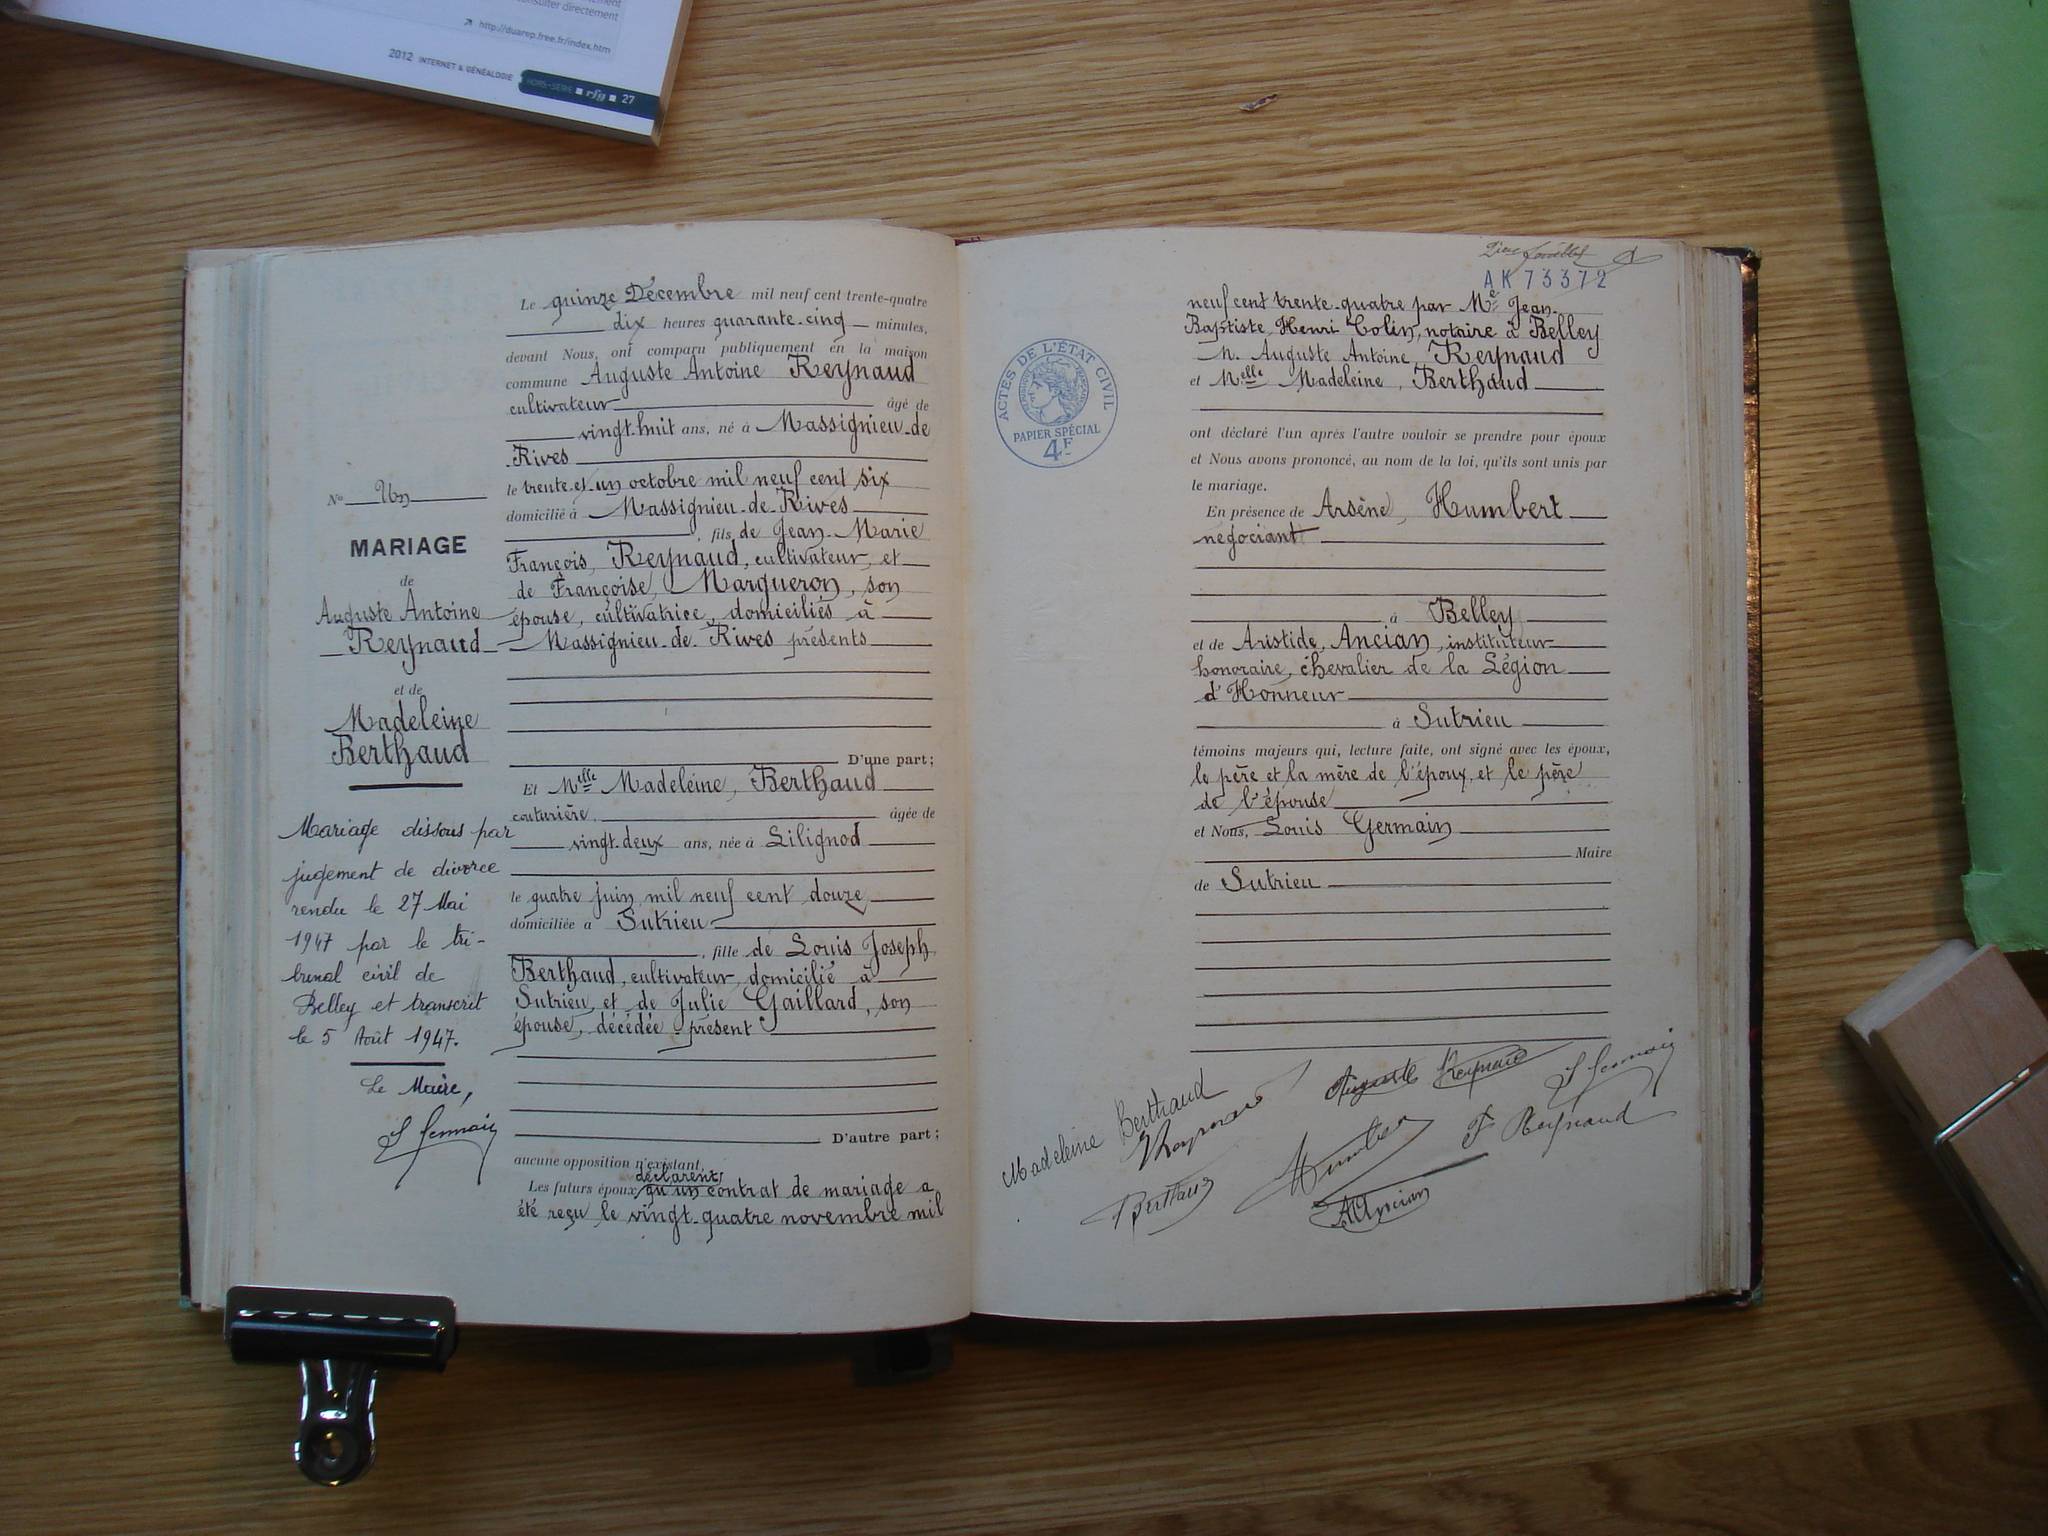 onsulter directement
http://duarep.free.fr/index.htm
2012 INTERNET & GÉNÉALOGIE HORS-SÉRIE rfg 27
N° Un
MARIAGE
de
Auguste Antoine
Reynaud
et de
Madeleine
Berthaud
Mariage dissous par
jugement de divorce
rendu le 27 Mai
1947 par le tri-
bunal civil de
Belley et transcrit
le 5 Août 1947.
Le Maire,
L Germain
Le quinze Décembre mil neuf cent trente-quatre
dix heures quarante-cinq minutes,
devant Nous, ont comparu publiquement en la maison
commune Auguste Antoine Reynaud
cultivateur âgé de
vingt-huit ans, né à Massignieu-de
Rives
le trente-et-un octobre mil neuf cent six
domicilié à Massignieu-de-Rives
fils de Jean-Marie
François, Reynaud, cultivateur, et
de Françoise, Margueron, son
épouse, cultivatrice, domiciliés à
Massignieu-de-Rives présents
D'une part;
Et Melle Madeleine, Berthaud
couturière. âgée de
vingt-deux ans, née à Lilignod
le quatre juin mil neuf cent douze
domiciliée à Sutrieu
, fille de Louis Joseph
Berthaud, cultivateur, domicilié à
Sutrieu, et de Julie Gaillard, son
épouse, décédée - présent
D'autre part;
aucune opposition n'existant,
déclarent
Les futurs époux qu'un contrat de mariage a
été reçu le vingt-quatre novembre mil
AK 73372
neuf cent trente-quatre par Me Jean-
Baptiste Henri Colin, notaire à Belley
M. Auguste Antoine, Reynaud
et Melle Madeleine, Berthaud
ACTES DE L'ÉTAT CIVIL
PAPIER SPÉCIAL
4F
ont déclaré l'un après l'autre vouloir se prendre pour époux
et Nous avons prononcé, au nom de la loi, qu'ils sont unis par
le mariage.
En présence de Arsène, Humbert
négociant
à Belley
et de Aristide, Ancian, instituteur
honoraire, chevalier de la Légion
d'Honneur
à Sutrieu
témoins majeurs qui, lecture faite, ont signé avec les époux,
le père et la mère de l'époux, et le père
de l'épouse
et Nous, Louis Germain
Maire
de Sutrieu
Madeleine Berthaud
Reynaud
Auguste Reynaud
L Germain
Berthaud
Humbert
F Reynaud
A Ancian